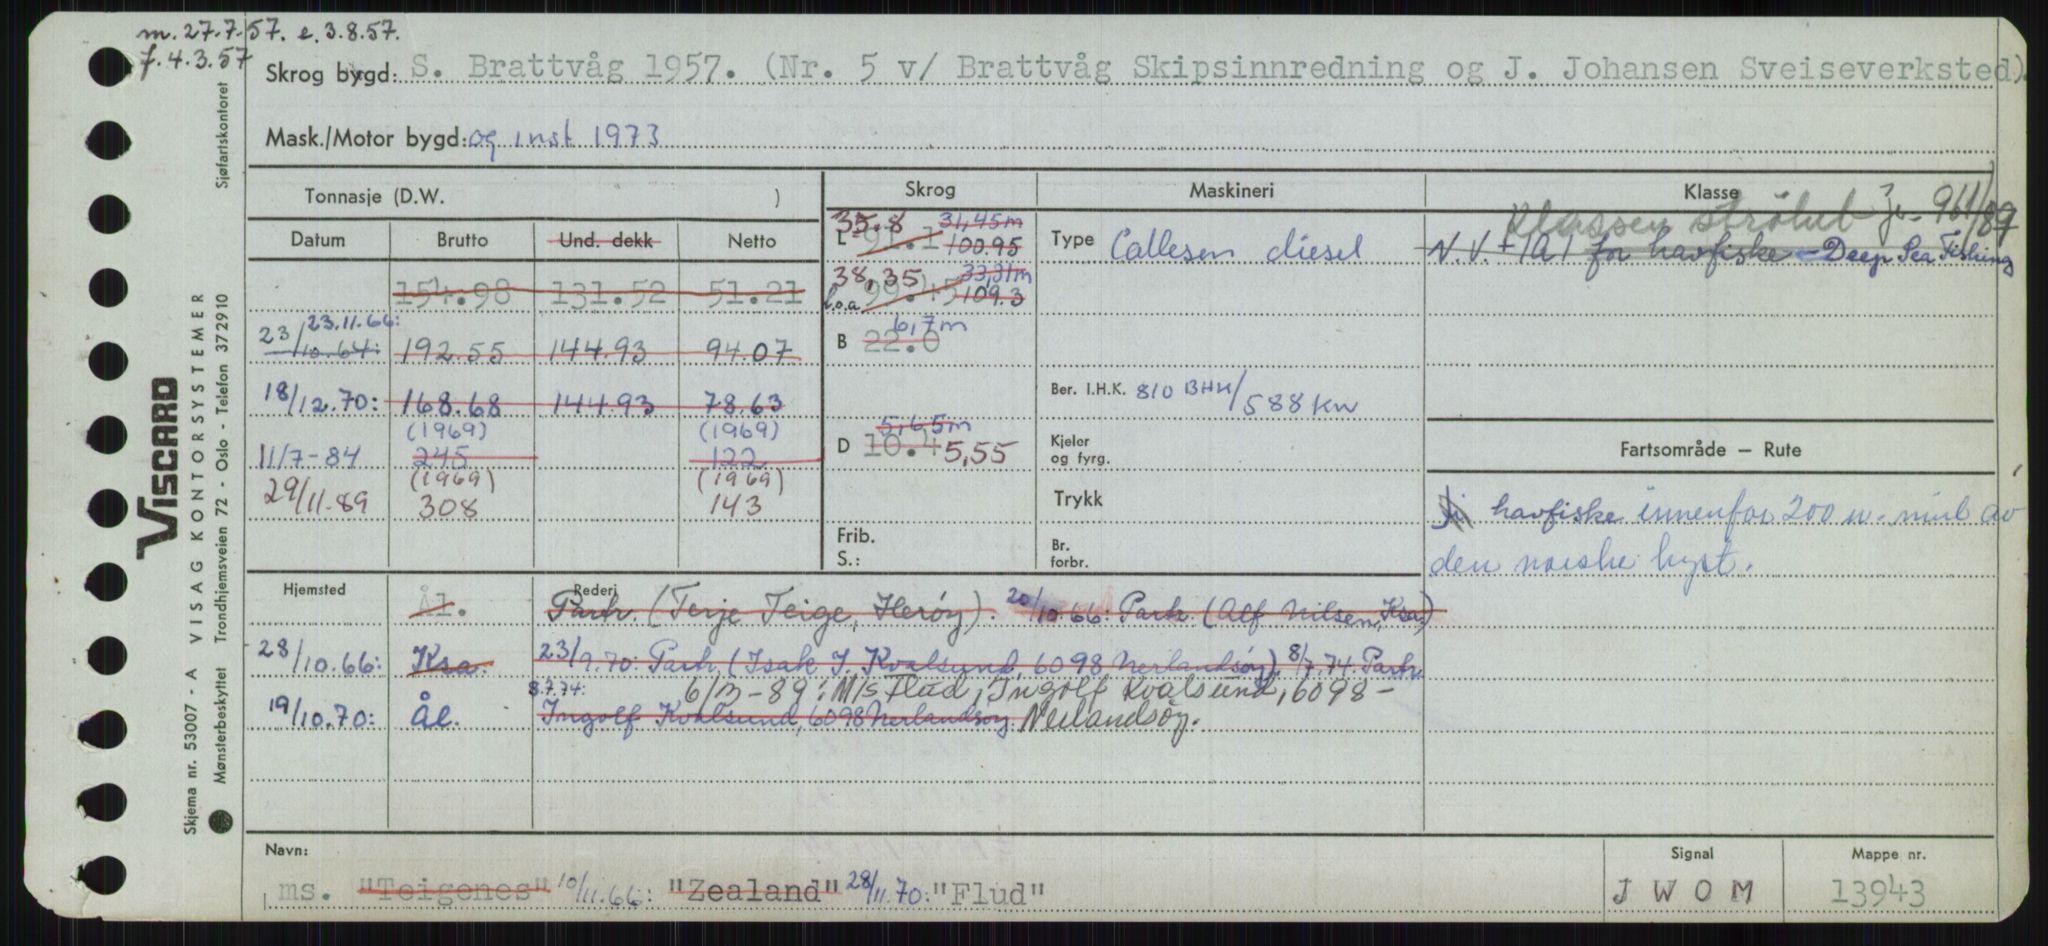 m. 27.7.57. e. 3.8.57.
f. 4.3.57
Skrog bygd: S. Brattvåg 1957. (Nr. 5 v/ Brattvåg Skipsinnredning og J. Johansen Sveiseverksted).
Mask./Motor bygd: og inst 1973
Tonnasje (D.W. )
Skrog
Maskineri
Klasse
Datum
Brutto
Und. dekk
Netto
154.98 131.52 51.21
23/10.64: 23.11.66: 192.55 144.93 94.07
18/12.70: 168.68 144.93 78.63
(1969) (1969)
11/7-84 245 122
(1969) (1969)
29/11-89 308 143
35.8 31,45m
L 100.95
38,35 33,31m
L.o.a 99.45 109.3
6,7m
B 22.0
5,65m
D 10.4 5,55
Frib.
S.:
Type Callesen diesel
Ber. I.H.K. 810 BHK/588 kw
Kjeler
og fyrg.
Trykk
Br.
forbr.
Klassen strøket 961/87
N.V. + 1A1 for havfiske - Deep Sea Fishing
Fartsområde — Rute
havfiske innenfor 200 n. mil av
den norske kyst.
Hjemsted
Rederi
Ål. Parh. (Terje Teige, Herøy). 20/10.66: Parh. (Alf Nilsen, Ksa.)
28/10.66: Ksa. 23/9.70: Parh. (Isak J. Kvalsund, 6098 Nerlandsøy). 8/7.74 Parh.
6/3-89: M/s Flud, Ingolf Kvalsund, 6098 -
19/10.70: Ål. 8.7.74: Ingolf Kvalsund, 6098 Nerlandsøy. Nerlandsøy.
Navn:
ms. "Teigenes" 10/11.66: "Zealand" 28/11.70: "Flud"
Signal
JWOM
Mappe nr.
13943
VISCARD
Skjema nr. 53007 - A VISAG KONTORSYSTEMER
Sjøfartskontoret
Mønsterbeskyttet Trondhjemsveien 72 - Oslo - Telefon 372910